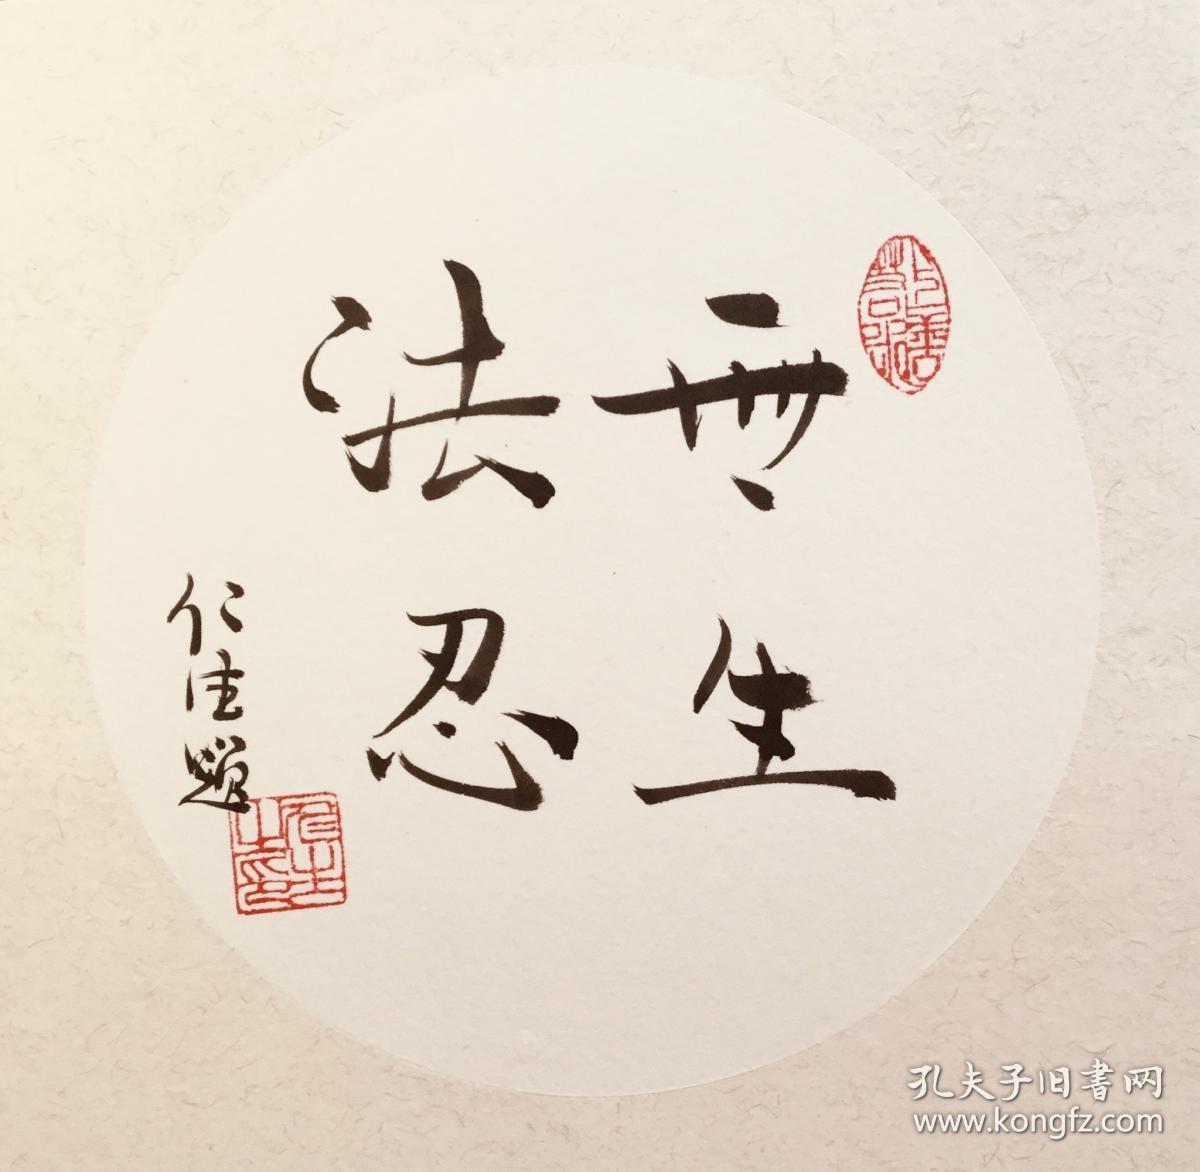 無生
法忍
仁德題
孔夫子旧書网
www.kongfz.com